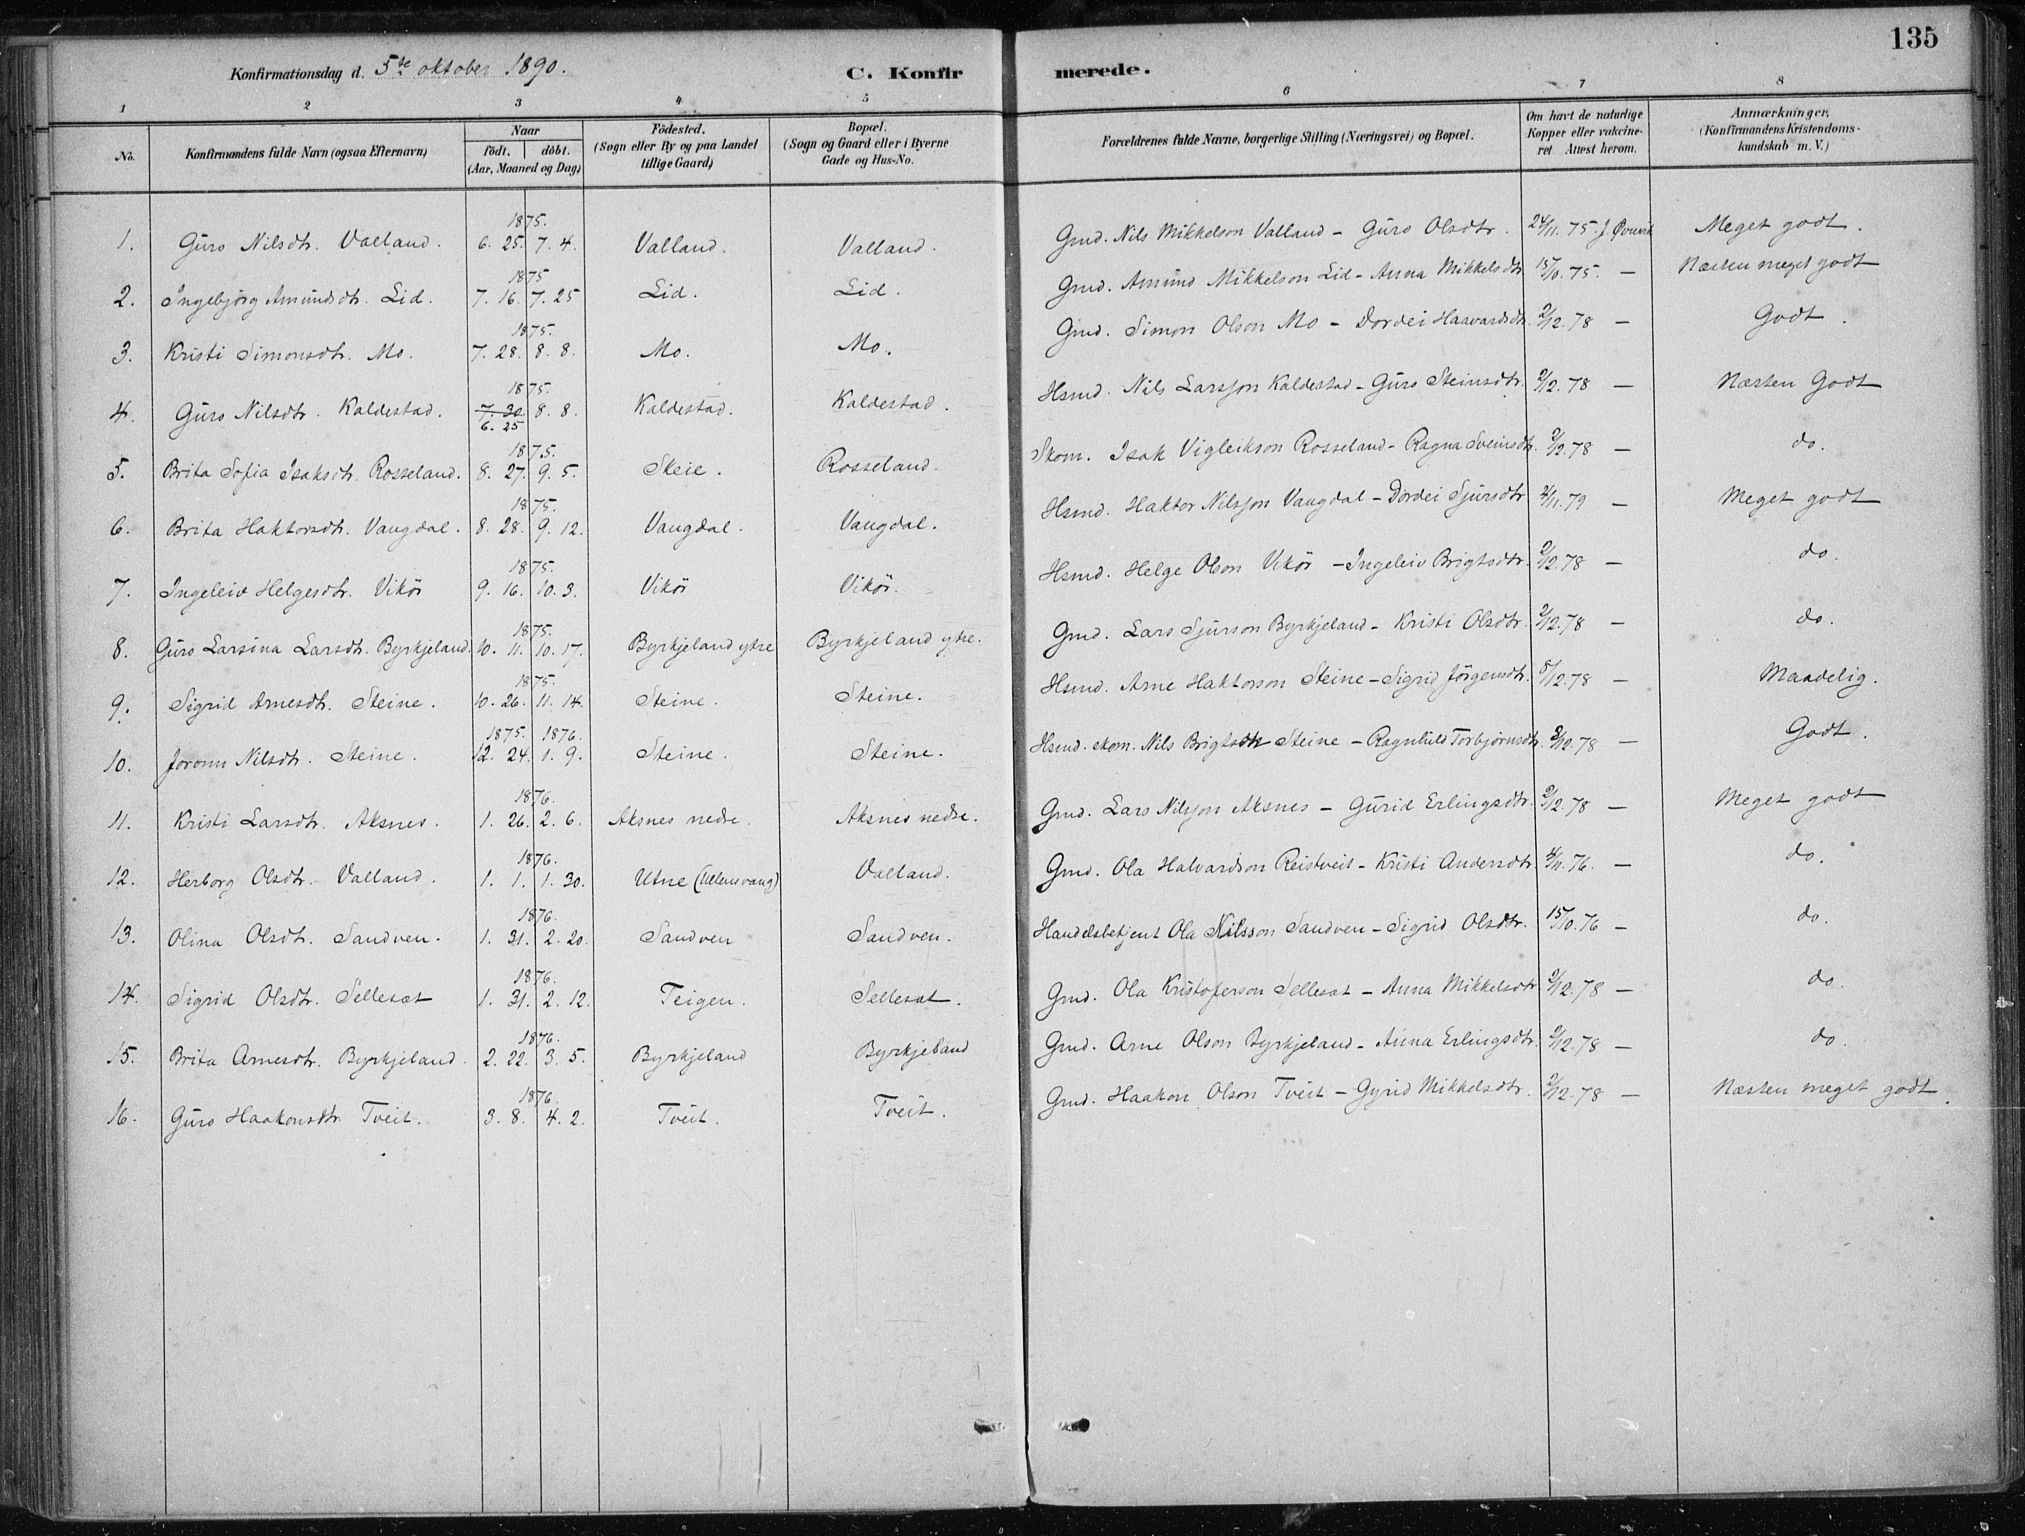 135
Konfirmationsdag d. 5te oktober 1890. C. Konfirmerede.
1 2 3 4 5 6 7 8
No. Konfirmandens fulde Navn (ogsaa Efternavn) Naar födt. döbt. (Aar, Maaned og Dag) Födested. (Sogn eller By og paa Landet tillige Gaard) Bopæl. (Sogn og Gaard eller i Byerne Gade og Hus-No. Forældrenes fulde Navne, borgerlige Stilling (Næringsvei) og Bopæl. Om havt de naturlige Kopper eller vakcineret. Attest herom. Anmærkninger. (Konfirmandens Kristendomskundskab m. V.)
1. Guro Nilsdtr. Valland. 1875. 6. 25. 7. 4. Valland. Valland. Gmd. Nils Mikkelson Valland – Guro Olsdtr. 24/11. 75. J. Meget godt.
2. Ingebjørg Amundsdtr. Lid. 1875 7. 16. 7. 25 Lid. Lid. Gmd. Amund Mikkelson Lid – Anna Mikkelsdtr. 15/10. 75. – Næsten meget godt
3. Kristi Simonsdtr. Mo. 1875. 7. 28. 8. 8. Mo. Mo. Gmd. Simon Olson Mo – Dordei Haavardsdtr. 2/12. 78 – Godt.
4. Guro Nilsdtr. Kaldestad. 1875. 7. 30 6. 25 8. 8. Kaldestad. Kaldestad. Hsmd. Nils Larsson Kaldestad – Guro Steinsdtr. 2/12. 78 – Næsten Godt
5. Brita Sofia Isaksdtr. Rosseland. 1875. 8. 27. 9. 5. Skeie. Rosseland. Skom. Isak Vigleikson Rosseland – Ragna Sveinsdtr. 2/12. 78 – do.
6. Brita Haktorsdtr. Vangdal. 1875. 8. 28. 9. 12. Vangdal. Vangdal. Hsmd. Haktor Nilsson Vangdal – Dordei Sjursdtr. 4/11. 79 – Meget godt
7. Ingeleiv Helgesdtr. Vikör 1875. 9. 16. 10. 3. Vikör Vikör. Hsmd. Helge Olson Vikör – Ingeleiv Brigtsdtr. 2/12. 78 – do.
8. Guro Larsina Larsdtr. Byrkjeland. 1875. 10. 11. 10. 17. Byrkjeland ytre Byrkjeland ytre. Gmd. Lars Sjurson Byrkjeland – Kristi Olsdtr. 2/12. 78 – do.
9. Sigrid Arnesdtr. Steine. 1875. 10. 26. 11. 14. Steine. Steine. Hsmd. Arne Haktorson Steine – Sigrid Jörgensdtr. 5/12. 78 – Maadelig.
10. Joronn Nilsdtr. Steine. 1875. 1876. 12. 24. 1. 9. Steine. Steine. Hsmd. skom. Nils Brigtsdtr Steine – Ragnhild Torbjørnsdtr. 2/12. 78 – Godt.
11. Kristi Larsdtr. Aksnes. 1876. 1. 26. 2. 6. Aksnes nedre. Aksnes nedre. Gmd. Lars Nilsson Aksnes – Gurid Erlingsdtr. 2/12. 78 – Meget godt
12. Herborg Olsdtr. Valland. 1876. 1. 1. 1. 30. Utne (Ullensvang) Valland. Gmd. Ola Halvardson Reistveit – Kristi Andersdtr. 4/11. 76. – do.
13. Olina Olsdtr. Sandven. 1876. 1. 31. 2. 20. Sandven Sandven. Handelsbetjent Ola Nilsson Sandven – Sigrid Olsdtr. 15/10. 76 – do.
14. Sigrid Olsdtr. Sellesæt 1876. 1. 31. 2. 12. Teigen. Sellesæt. Gmd. Ola Kristoferson Sellesæt – Anna Mikkelsdtr. 2/12. 78 – do.
15. Brita Arnesdtr. Byrkjeland. 1876. 2. 22. 3. 5. Byrkjeland Byrkjeland Gmd. Arne Olson Byrkjeland – Anna Erlingsdtr. 2/12. 78 – do.
16. Guro Haakonsdtr. Tveit. 1876. 3. 8. 4. 2. Tveit. Tveit. Gmd. Haakon Olson Tveit – Gyrid Mikkelsdtr. 2/12. 78 – Næsten meget godt.